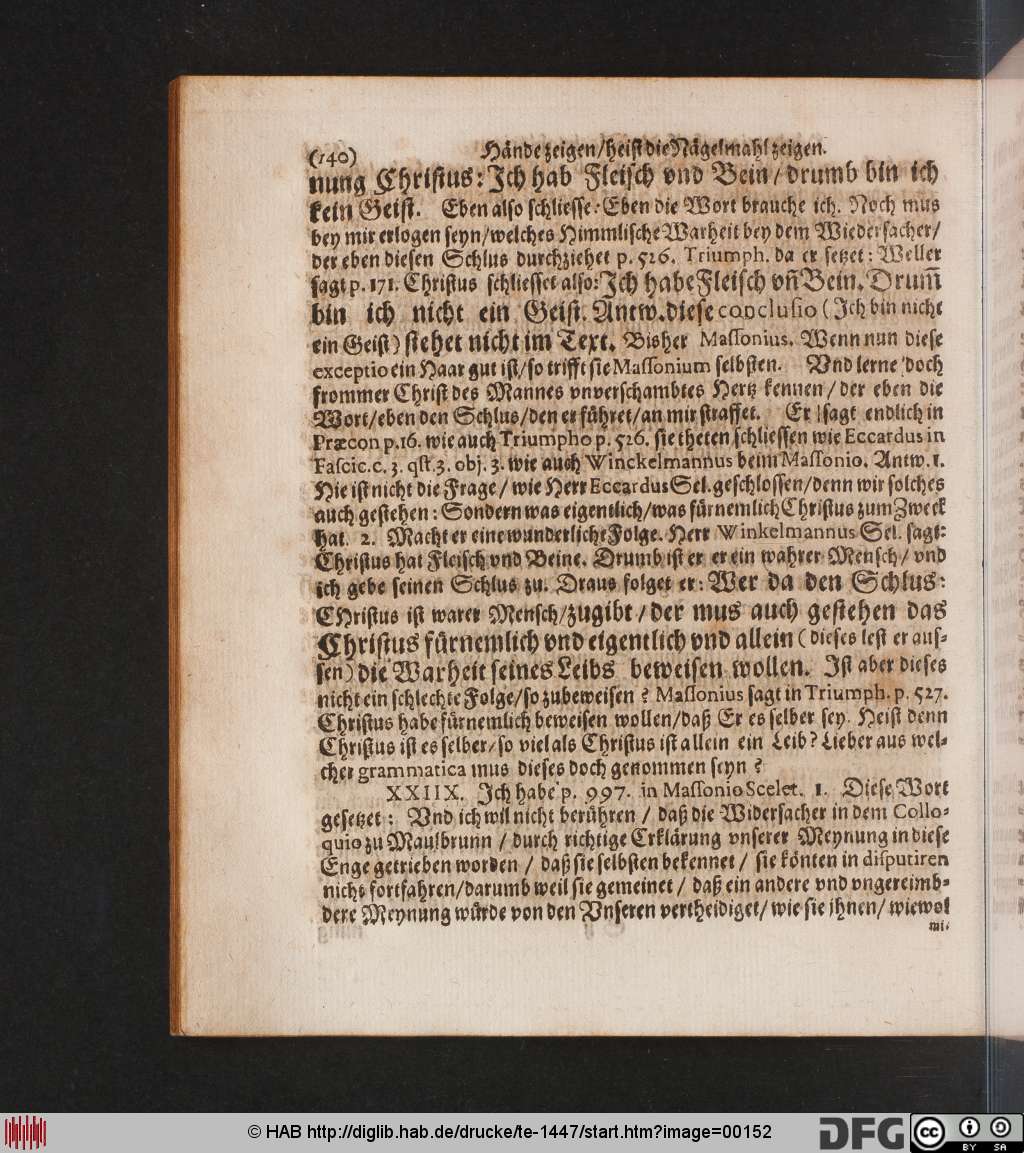 (140) Hände zeigen/heist die Nägelmahl zeigen.
nung Christus: Ich hab Fleisch vnd Bein/drumb bin ich
kein Geist. Eben also schliesse: Eben die Wort brauche ich. Noch mus
bey mir erlogen seyn/welches Himmlische Warheit bey dem Wiedersacher/
der eben diesen Schlus durchziehet p. 526. Triumph. da er setzet: Weller
sagt p. 171. Christus schliesset also: Ich habe Fleisch vñ Bein. Drum̃
bin ich nicht ein Geist. Antw. diese conclusio (Ich bin nicht
ein Geist) stehet nicht im Text. Bisher Massonius. Wenn nun diese
exceptio ein Haar gut ist/so trifft sie Massonium selbsten. Vnd lerne doch
frommer Christ des Mannes vnverschambtes Hertz kennen/der eben die
Wort/eben den Schlus/den er führet/an mir straffet. Er sagt endlich in
Præcon p. 16. wie auch Triumpho p. 526. sie theten schliessen wie Eccardus in
Fascic. c. 3. qst. 3. obj. 3. wie auch Winckelmannus beim Massonio. Antw. 1.
Hie ist nicht die Frage/wie Herr Eccardus Sel. geschlossen/denn wir solches
auch gestehen: Sondern was eigentlich/was fürnemlich Christus zum Zweck
hat. 2. Macht er eine wunderliche Folge. Herr Winkelmannus Sel. sagt:
Christus hat Fleisch vnd Beine. Drumb ist er er ein wahrer Mensch/vnd
ich gebe seinen Schlus zu. Draus folget er: Wer da den Schlus:
CHristus ist warer Mensch/zugibt/der mus auch gestehen das
Christus fürnemlich vnd eigentlich vnd allein (dieses lest er aus-
sen) die Warheit seines Leibs beweisen wollen. Ist aber dieses
nicht ein schlechte Folge/so zubeweisen? Massonius sagt in Triumph. p. 527.
Christus habe fürnemlich beweisen wollen/daß Er es selber sey. Heist denn
Christus ist es selber/so viel als Christus ist allein ein Leib? Lieber aus wel-
cher grammatica mus dieses doch genommen seyn?
XXIIX. Ich habe p. 997. in Massonio Scelet. 1. Diese Wort
gesetzet: Vnd ich wil nicht berühren/daß die Widersacher in dem Collo-
quio zu Maulbrunn/durch richtige Erklärung vnserer Meynung in diese
Enge getrieben worden/daß sie selbsten bekennet/sie könten in disputiren
nicht fortfahren/darumb weil sie gemeinet/daß ein andere vnd vngereimb-
dere Meynung würde von den Vnseren vertheidiget/wie sie ihnen/wiewol
mi-
© HAB http://diglib.hab.de/drucke/te-1447/start.htm?image=00152
DFG
cc
BY SA